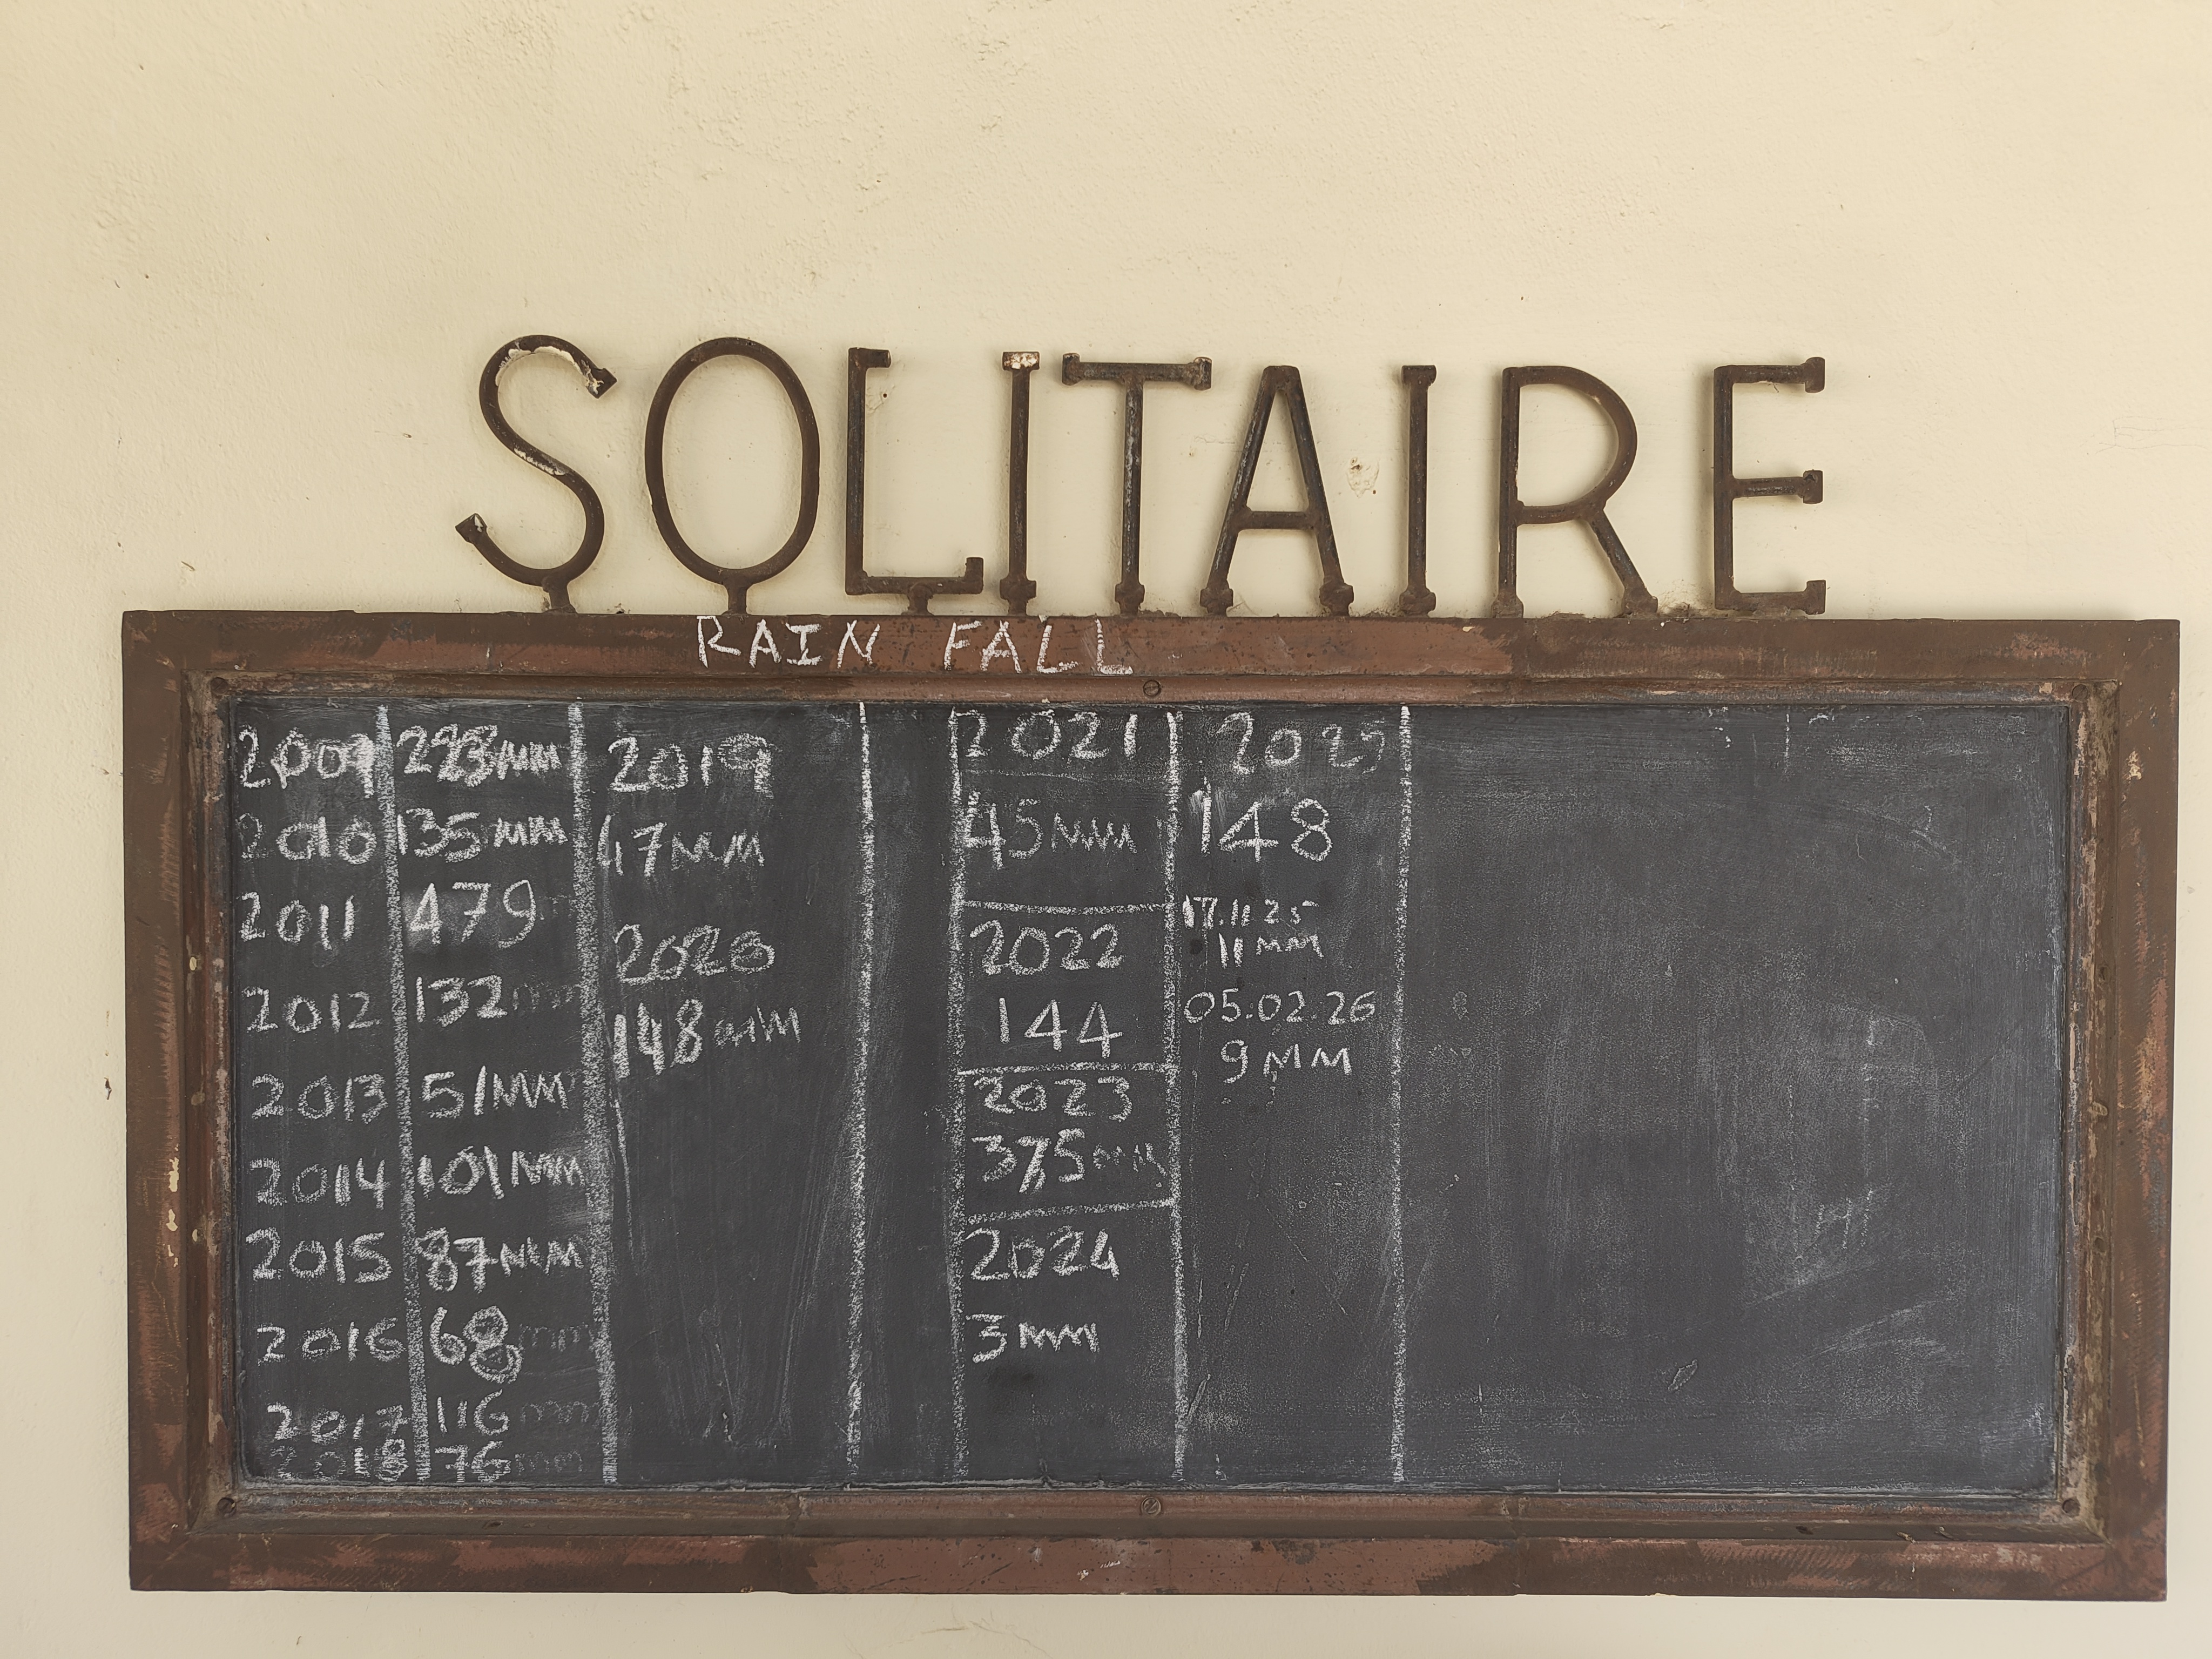 SOLITAIRE
RAIN FALL
2009 223MM
2010 135MM
2011 479
2012 132mm
2013 51MM
2014 101MM
2015 87MM
2016 68mm
2017 116mm
2018 76mm
2019
47MM
2020
148mm
2021
45MM
2022
144
2023
375mm
2024
3MM
2025
148
17.11.25
11MM
05.02.26
9MM